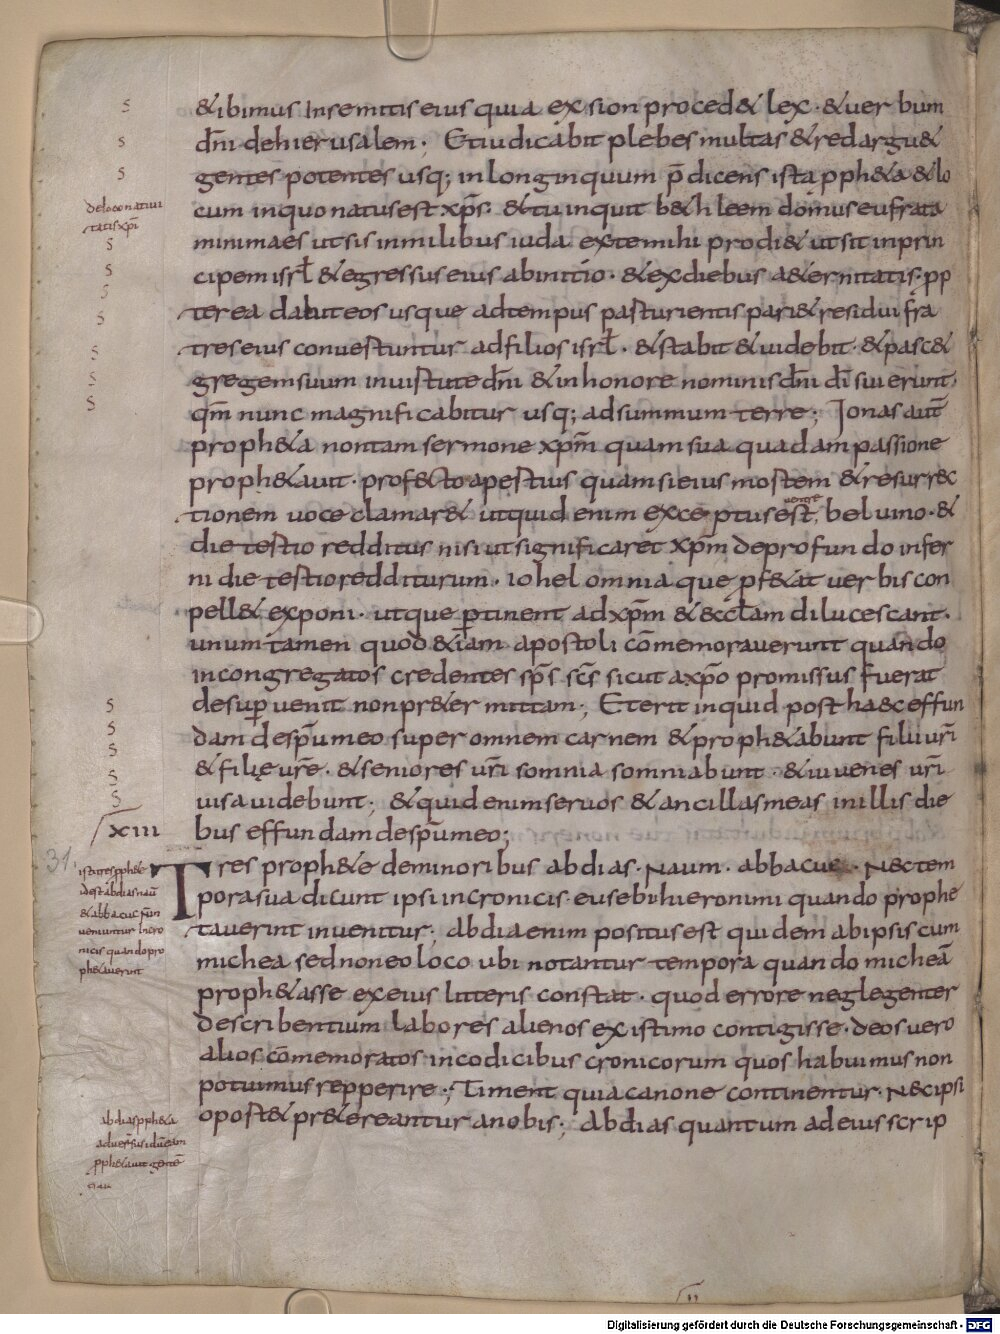 &ibimus Insemitis eius quia ex sion proced& lex · & uer bum
dn̄i dehierusalem · Etiudicabit plebes multas & redargu&
gentes potentes usq; inlonginquum p̄dicens ista pph&a & lo
de loco natiui
tatis xp̄i
cum inquo natus est xp̄s · & tu inquit b&hleem domus eufrata
minima es ut sis inmilibus iuda ex te mihi prodi& ut sit inprin
cipem isrł & egressus eius abinitio · & exdiebus a&ernitatis · pp
terea dabit eos usque adtempus parturientis pari& residui fra
tres eius conuertuntur adfilios isrł · & stabit & uidebit · & pasc&
gregem suum inuirtute dn̄i & inhonore nominis dn̄i dī sui erunt
qm̄ nunc magnificabitur usq; adsummum terre; Jonas aut̄
proph&a nontam sermone xpm̄ quam sua quadam passione
proph&auit · prof&to apertius quam si eius mortem & resurrec
tionem uoce clamar& utquid enim exceptus est uentre beluino · &
die tertio redditus nisi ut significaret xpm̄ deprofundo infer
ni die tertio redditurum · iohel omnia que pf&at uerbis con
pell& exponi · utque ptinent ad xpm̄ & eccłam dilucescant ·
unum tamen quod &iam apostoli cōmemorauerunt quando
incongregatos credentes sp̄s sc̄s sicut axp̄o promissus fuerat
desup uenit non pr&er mittam; Et erit inquid post haec effun
dam desp̄u meo super omnem carnem & proph&abunt filii ur̄i
& filię ur̄e · & seniores ur̄i somnia somniabunt · & iuuenes ur̄i
uisa uidebunt; & quidem seruos & ancillas meas inillis die
XIII
bus effundam desp̄u meo;
31.
Tres proph&e deminoribus abdias · Naum · abbacuc · Nec tem
pora sua dicunt ipsi incronicis eusebii hieronimi quando prophe
tauerint inuenitur; Abdia enim positus est quidem abipsis cum
michea sed non eo loco ubi notantur tempora quando micheā
proph&asse ex eius litteris constat · quod errore neglegenter
describentium labores alienos existimo contigisse · deos uero
alios cōmemoratos incodicibus cronicorum quos habuimus non
potuimus repperire; Timent quia canone continentur · Nec ipsi
oport& pr&ereantur anobis; Abdias quantum ad eius scrip
isti tres pph&e
id est abdias naū
& abbacuc
ueniuntur incro
nicis quando pro
ph&auerint
abdias pph&a
pph&auit gente
Digitalisierung gefördert durch die Deutsche Forschungsgemeinschaft - DFG